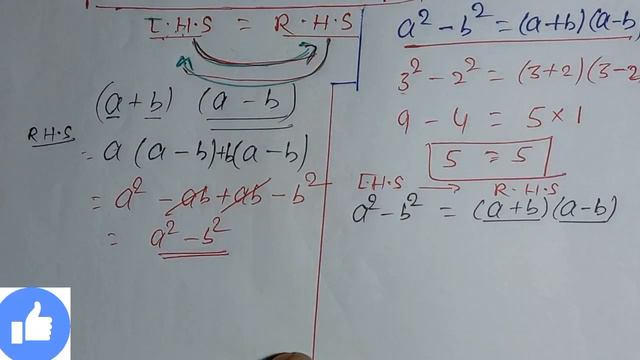 L·H·S = R·H·S
(a+b) (a-b)
R·H·S
= a(a-b)+b(a-b)
= a² - ab + ab - b²
= a² - b²
a² - b² = (a+b)(a-b
3² - 2² = (3+2)(3-2
9 - 4 = 5 × 1
5 = 5
L·H·S → R·H·S
a² - b² = (a+b)(a-b)